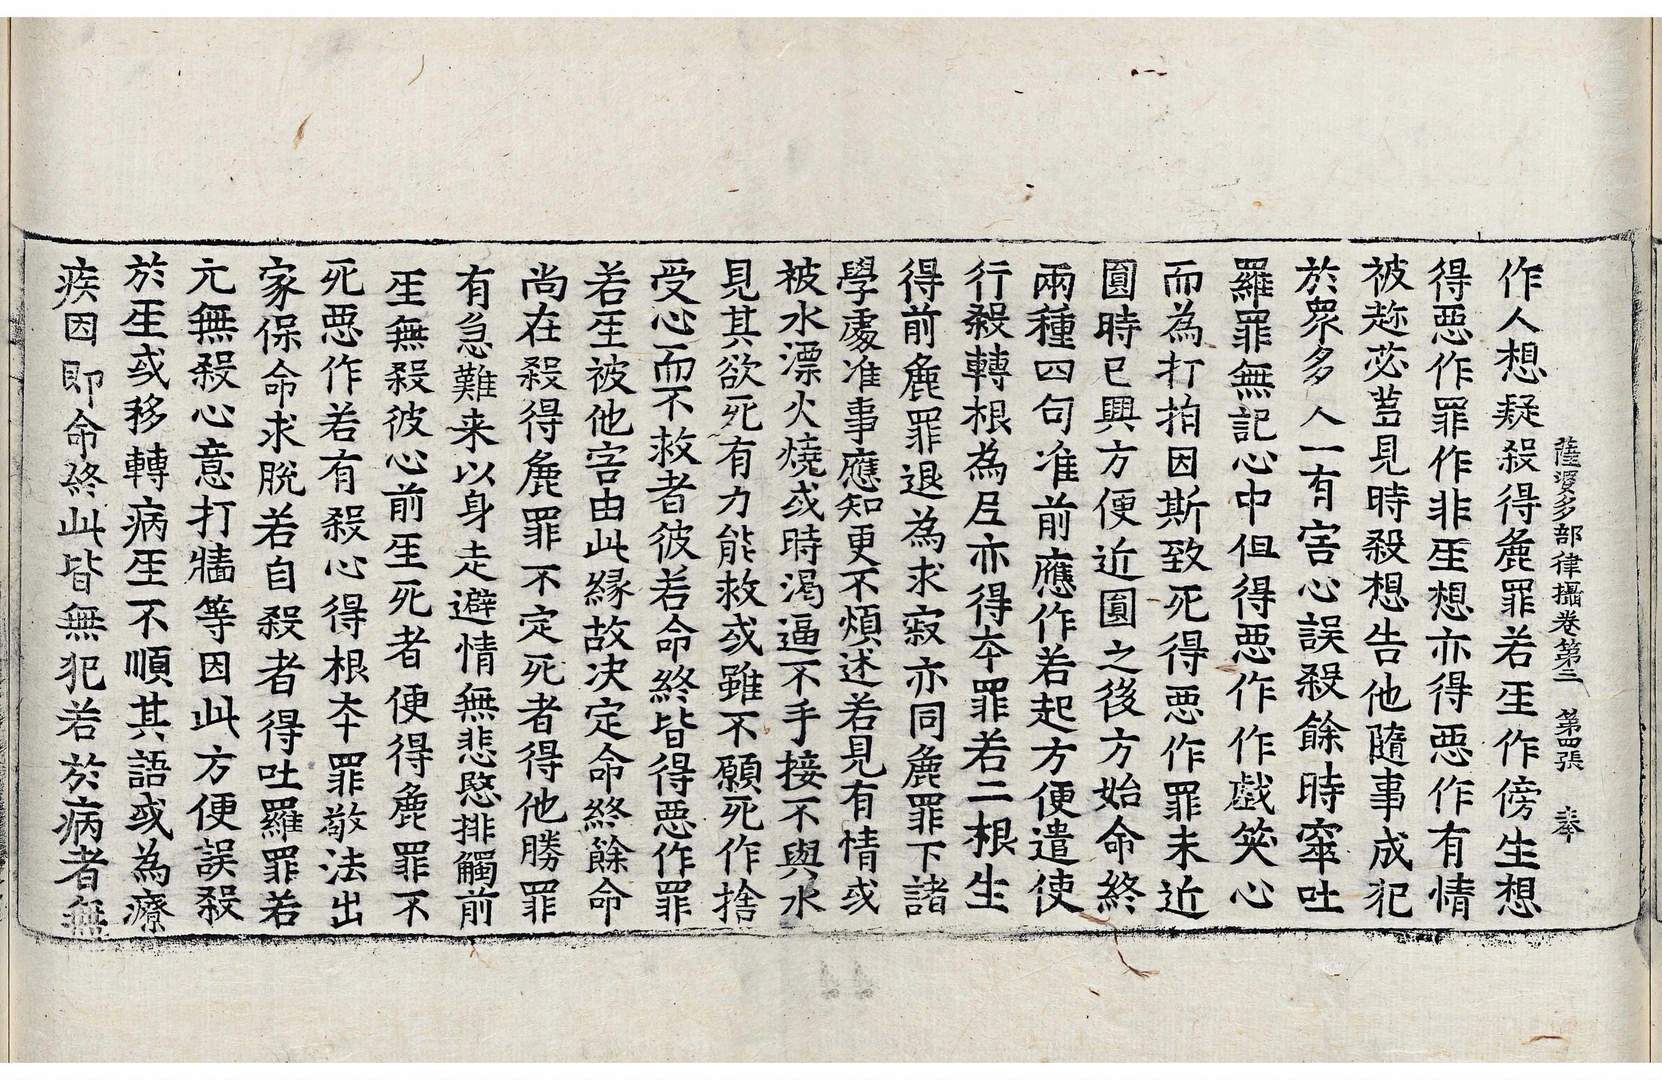 薩婆多部律攝卷第三 第四張 奉
作人想疑殺得麁罪若𤯔作傍生想
得惡作罪作非𤯔想亦得惡作有情
被趂苾芻見時殺想告他隨事成犯
於眾多人一有害心誤殺餘時窣吐
羅罪無記心中但得惡作作戲笑心
而為打拍因斯致死得惡作罪未近
圓時已興方便近圓之後方始命終
兩種四句准前應作若起方便遣使
行殺轉根為尼亦得本罪若二根生
得前麁罪退為求寂亦同麁罪下諸
學處准事應知更不煩述若見有情或
被水漂火燒或時渴逼不手接不與水
見其欲死有力能救或雖不願死作捨
受心而不救者彼若命終皆得惡作罪
若𤯔被他害由此緣故决定命終餘命
尚在殺得麁罪不定死者得他勝罪
有急難来以身走避情無悲愍排觸前
𤯔無殺彼心前𤯔死者便得麁罪不
死惡作若有殺心得根本罪敬法出
家保命求脫若自殺者得吐羅罪若
元無殺心意打牆等因此方便誤殺
於𤯔或移轉病𤯔不順其語或為療
疾因即命終此皆無犯若於病者無